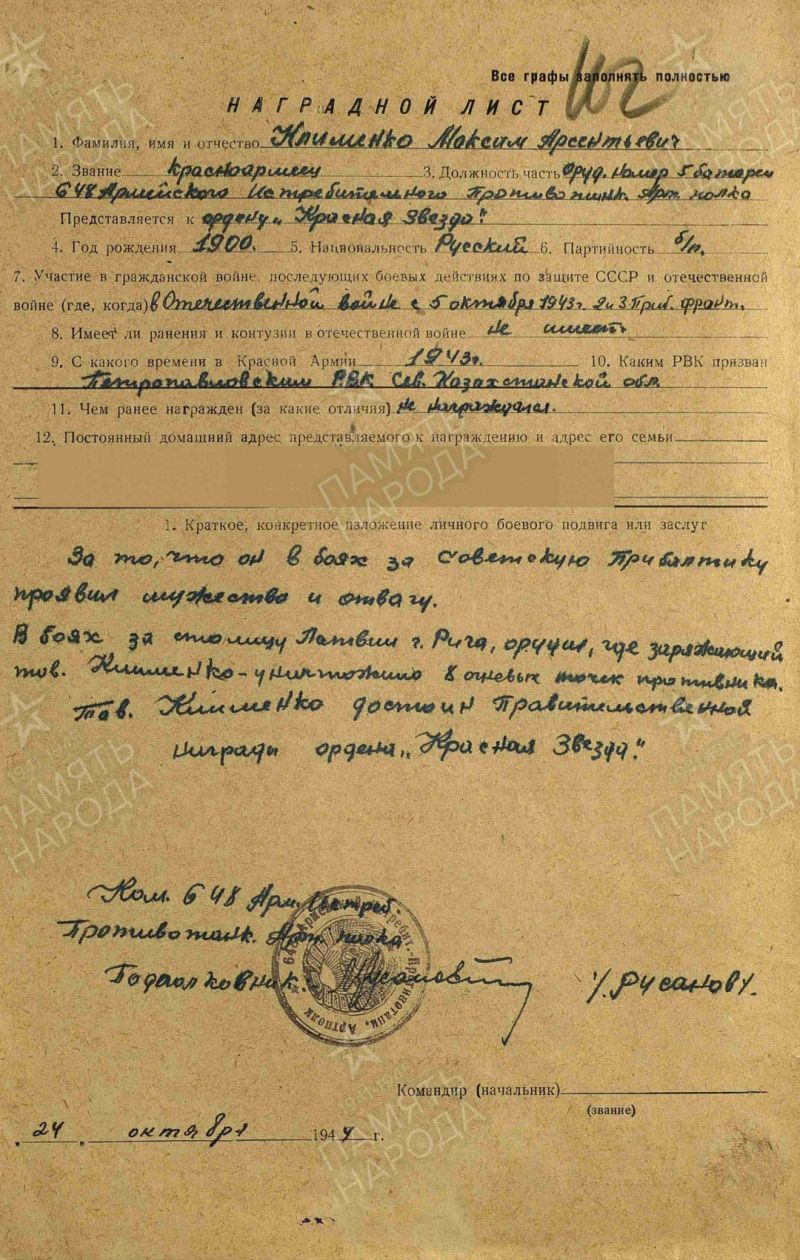 Все графы заполнять полностью
102
НАГРАДНОЙ ЛИСТ
1. Фамилия, имя и отчество Клименко Максим Арсентьевич
2. Звание красноармеец 3. Должность часть Оруд. номер 5 батареи
648 Армейского Истребительного Противотанк. арт. полка
Представляется к ордену „Красная Звезда"
4. Год рождения 1900. 5. Национальность Русский 6. Партийность б/п.
7. Участие в гражданской войне, последующих боевых действиях по защите СССР и отечественной
войне (где, когда) в Отечественной войне с 5 октября 1943г. 2 и 3 Приб. фронт.
8. Имеет ли ранения и контузии в отечественной войне не имеет
9. С какого времени в Красной Армии 1943г. 10. Каким РВК призван
Петропавловским РВК Сев. Казахстанской обл
11. Чем ранее награжден (за какие отличия) не награждался.
12. Постоянный домашний адрес представляемого к награждению и адрес его семьи
1. Краткое, конкретное изложение личного боевого подвига или заслуг
За то, что он в боях за Советскую Прибалтику
проявил мужество и отвагу.
В боях за столицу Латвии г. Рига, орудие, где заряжающий
тов. Клименко - уничтожило 8 огневых точек противника.
Тов. Клименко достоин Правительственной
награды ордена „Красная Звезда."
Ком. 648 Арм. Истреб.
Противотанк. Арт. полка
Подполковник
/Русанов/.
Командир (начальник)
(звание)
„24„ октября 1944 г.
ПАМЯТЬ НАРОДА